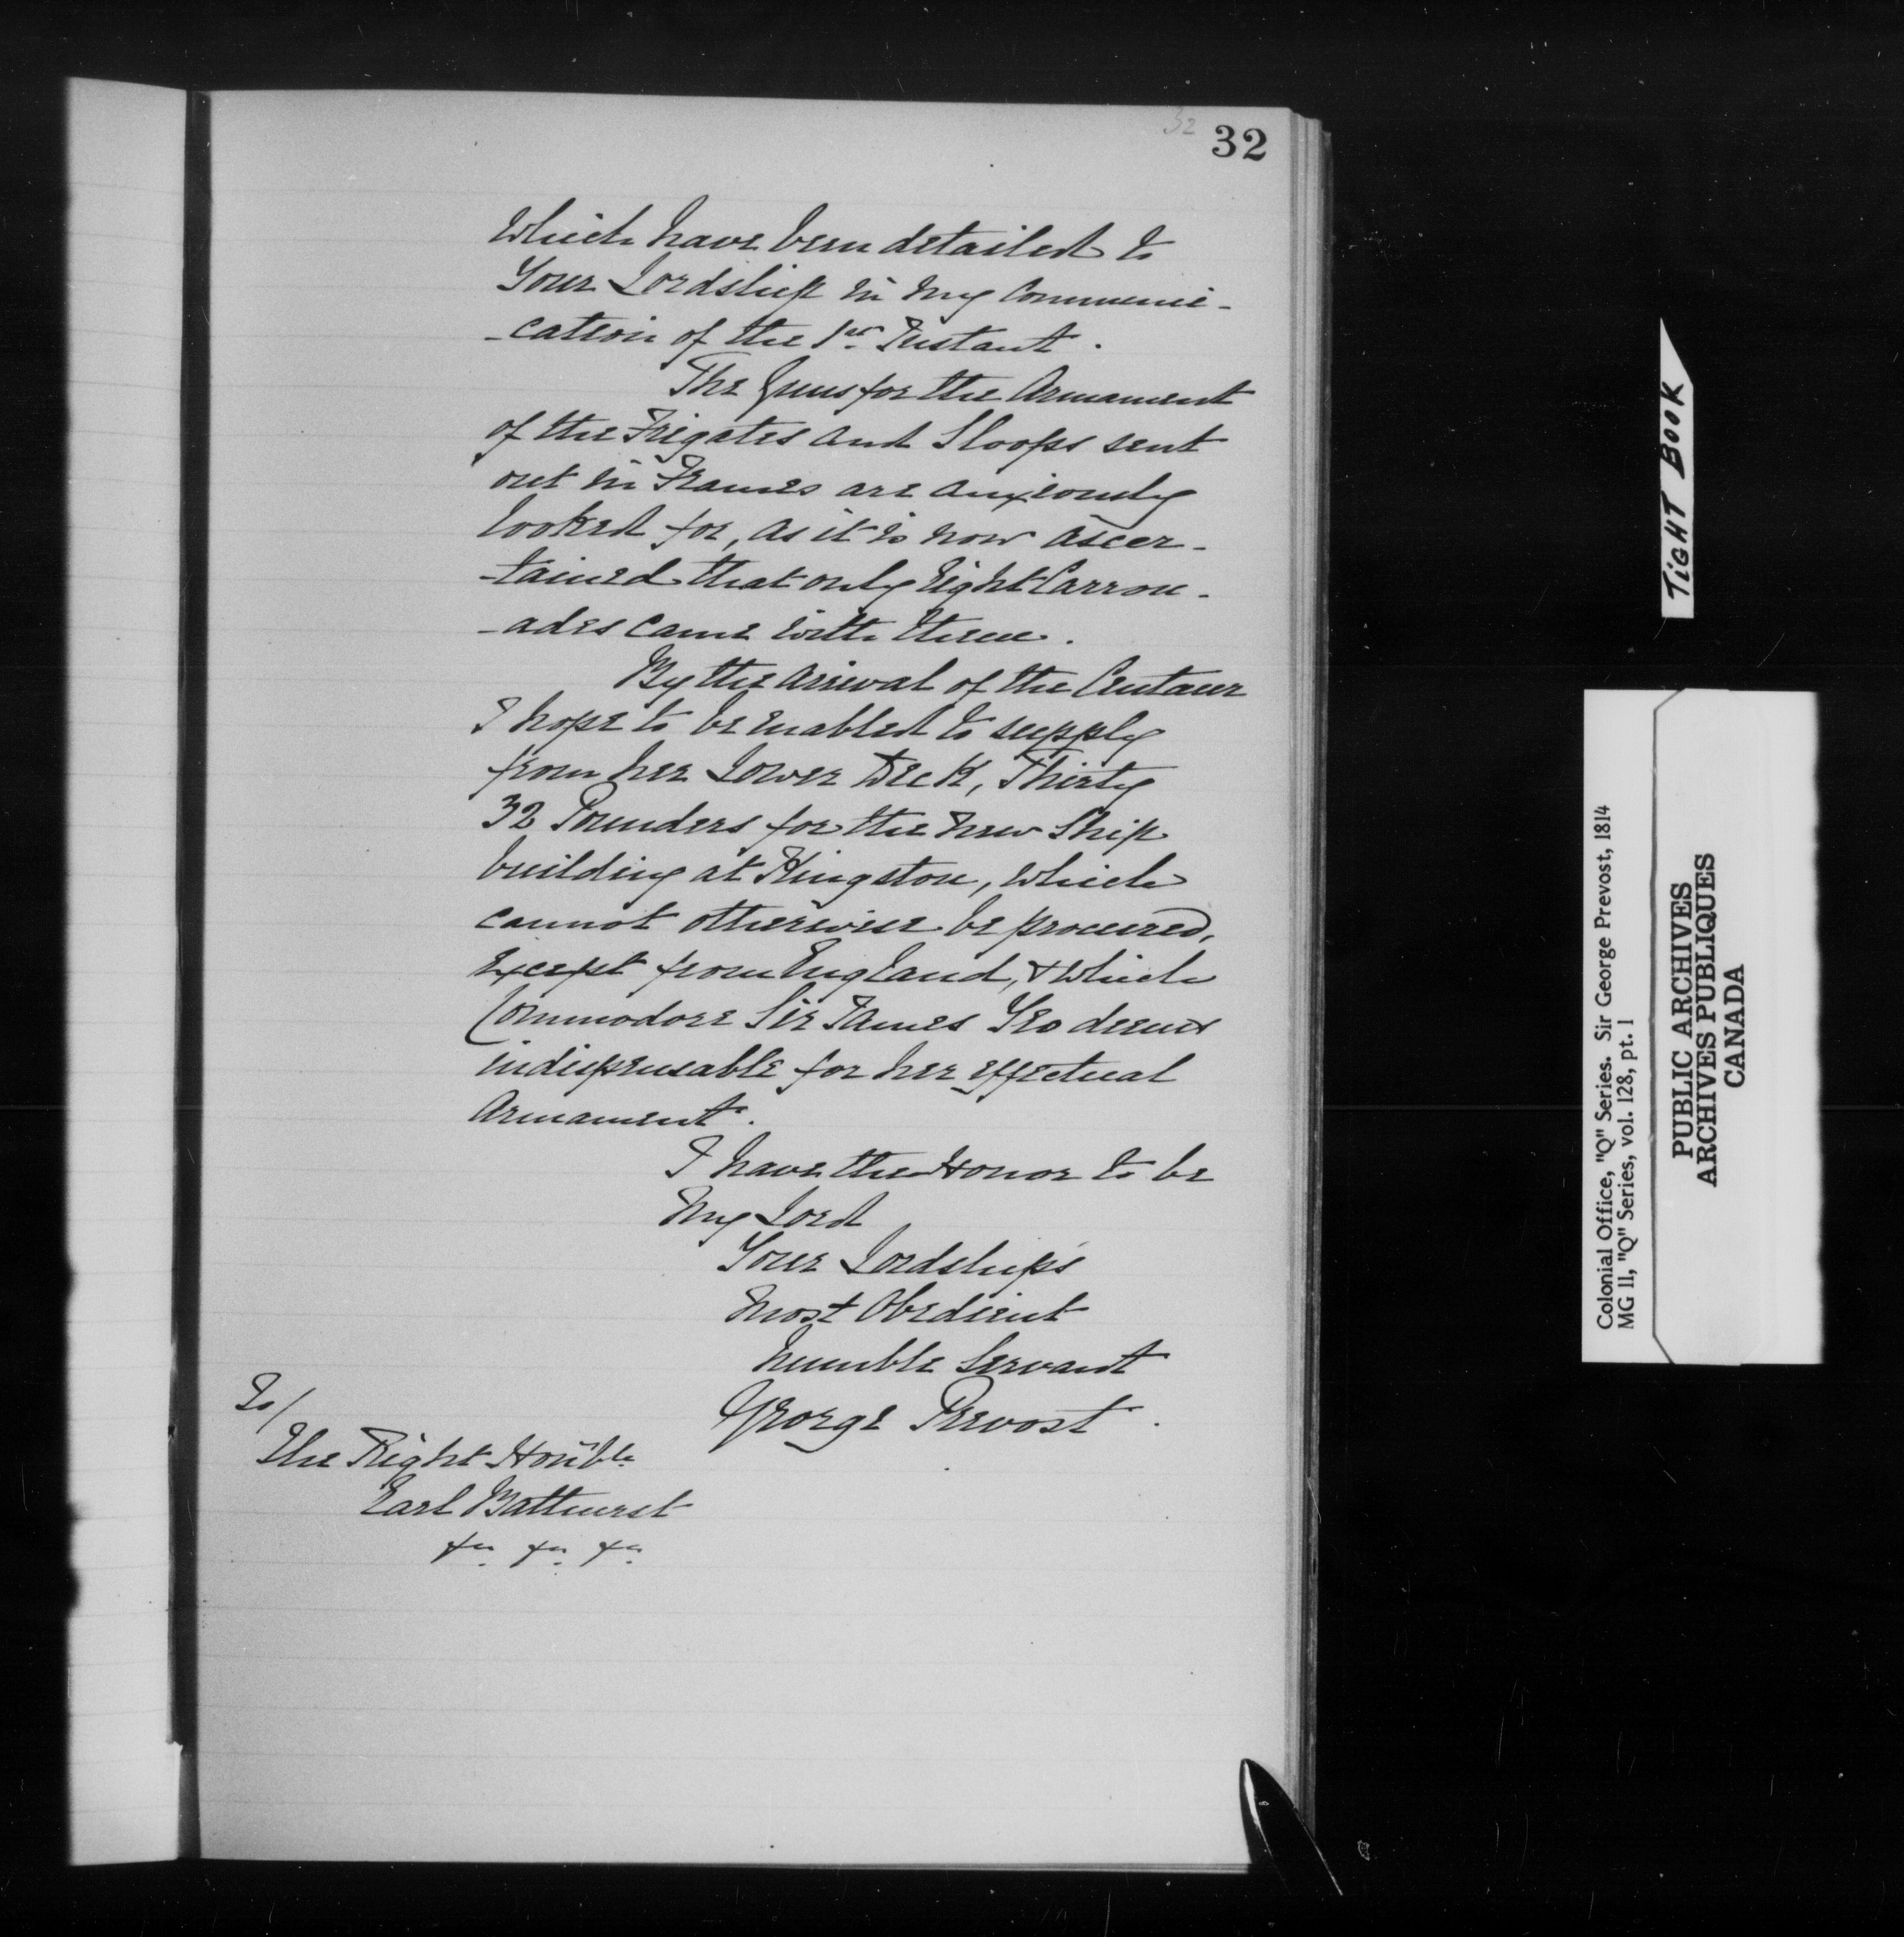 32 32
which have been detailed to
Your Lordship in my Communi-
-cation of the 1st Instant.
The Guns for the Armament
of the Frigates and Sloops sent
out in Frames are anxiously
looked for, as it is now ascer-
-tained that only Eight Carron-
-ades came with them.
By the arrival of the Centaur
I hope to be enabled to supply
from her Lower Deck, Thirty
32 Pounders for the new Ship
building at Kingston, which
cannot otherwise be procured,
Except from England, & which
Commodore Sir James Yeo deems
indispensable for her effectual
Armament.
I have the Honor to be
My Lord
Your Lordship's
Most Obedient
humble Servant
George Prevost.
To/
The Right Honble
Earl Bathurst
&c. &c. &c.
TIGHT BOOK
Colonial Office, "Q" Series. Sir George Prevost, 1814
MG 11, "Q" Series, vol. 128, pt. 1
PUBLIC ARCHIVES
ARCHIVES PUBLIQUES
CANADA